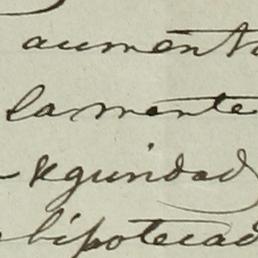 aument
lamente
seguridad
hipotecad